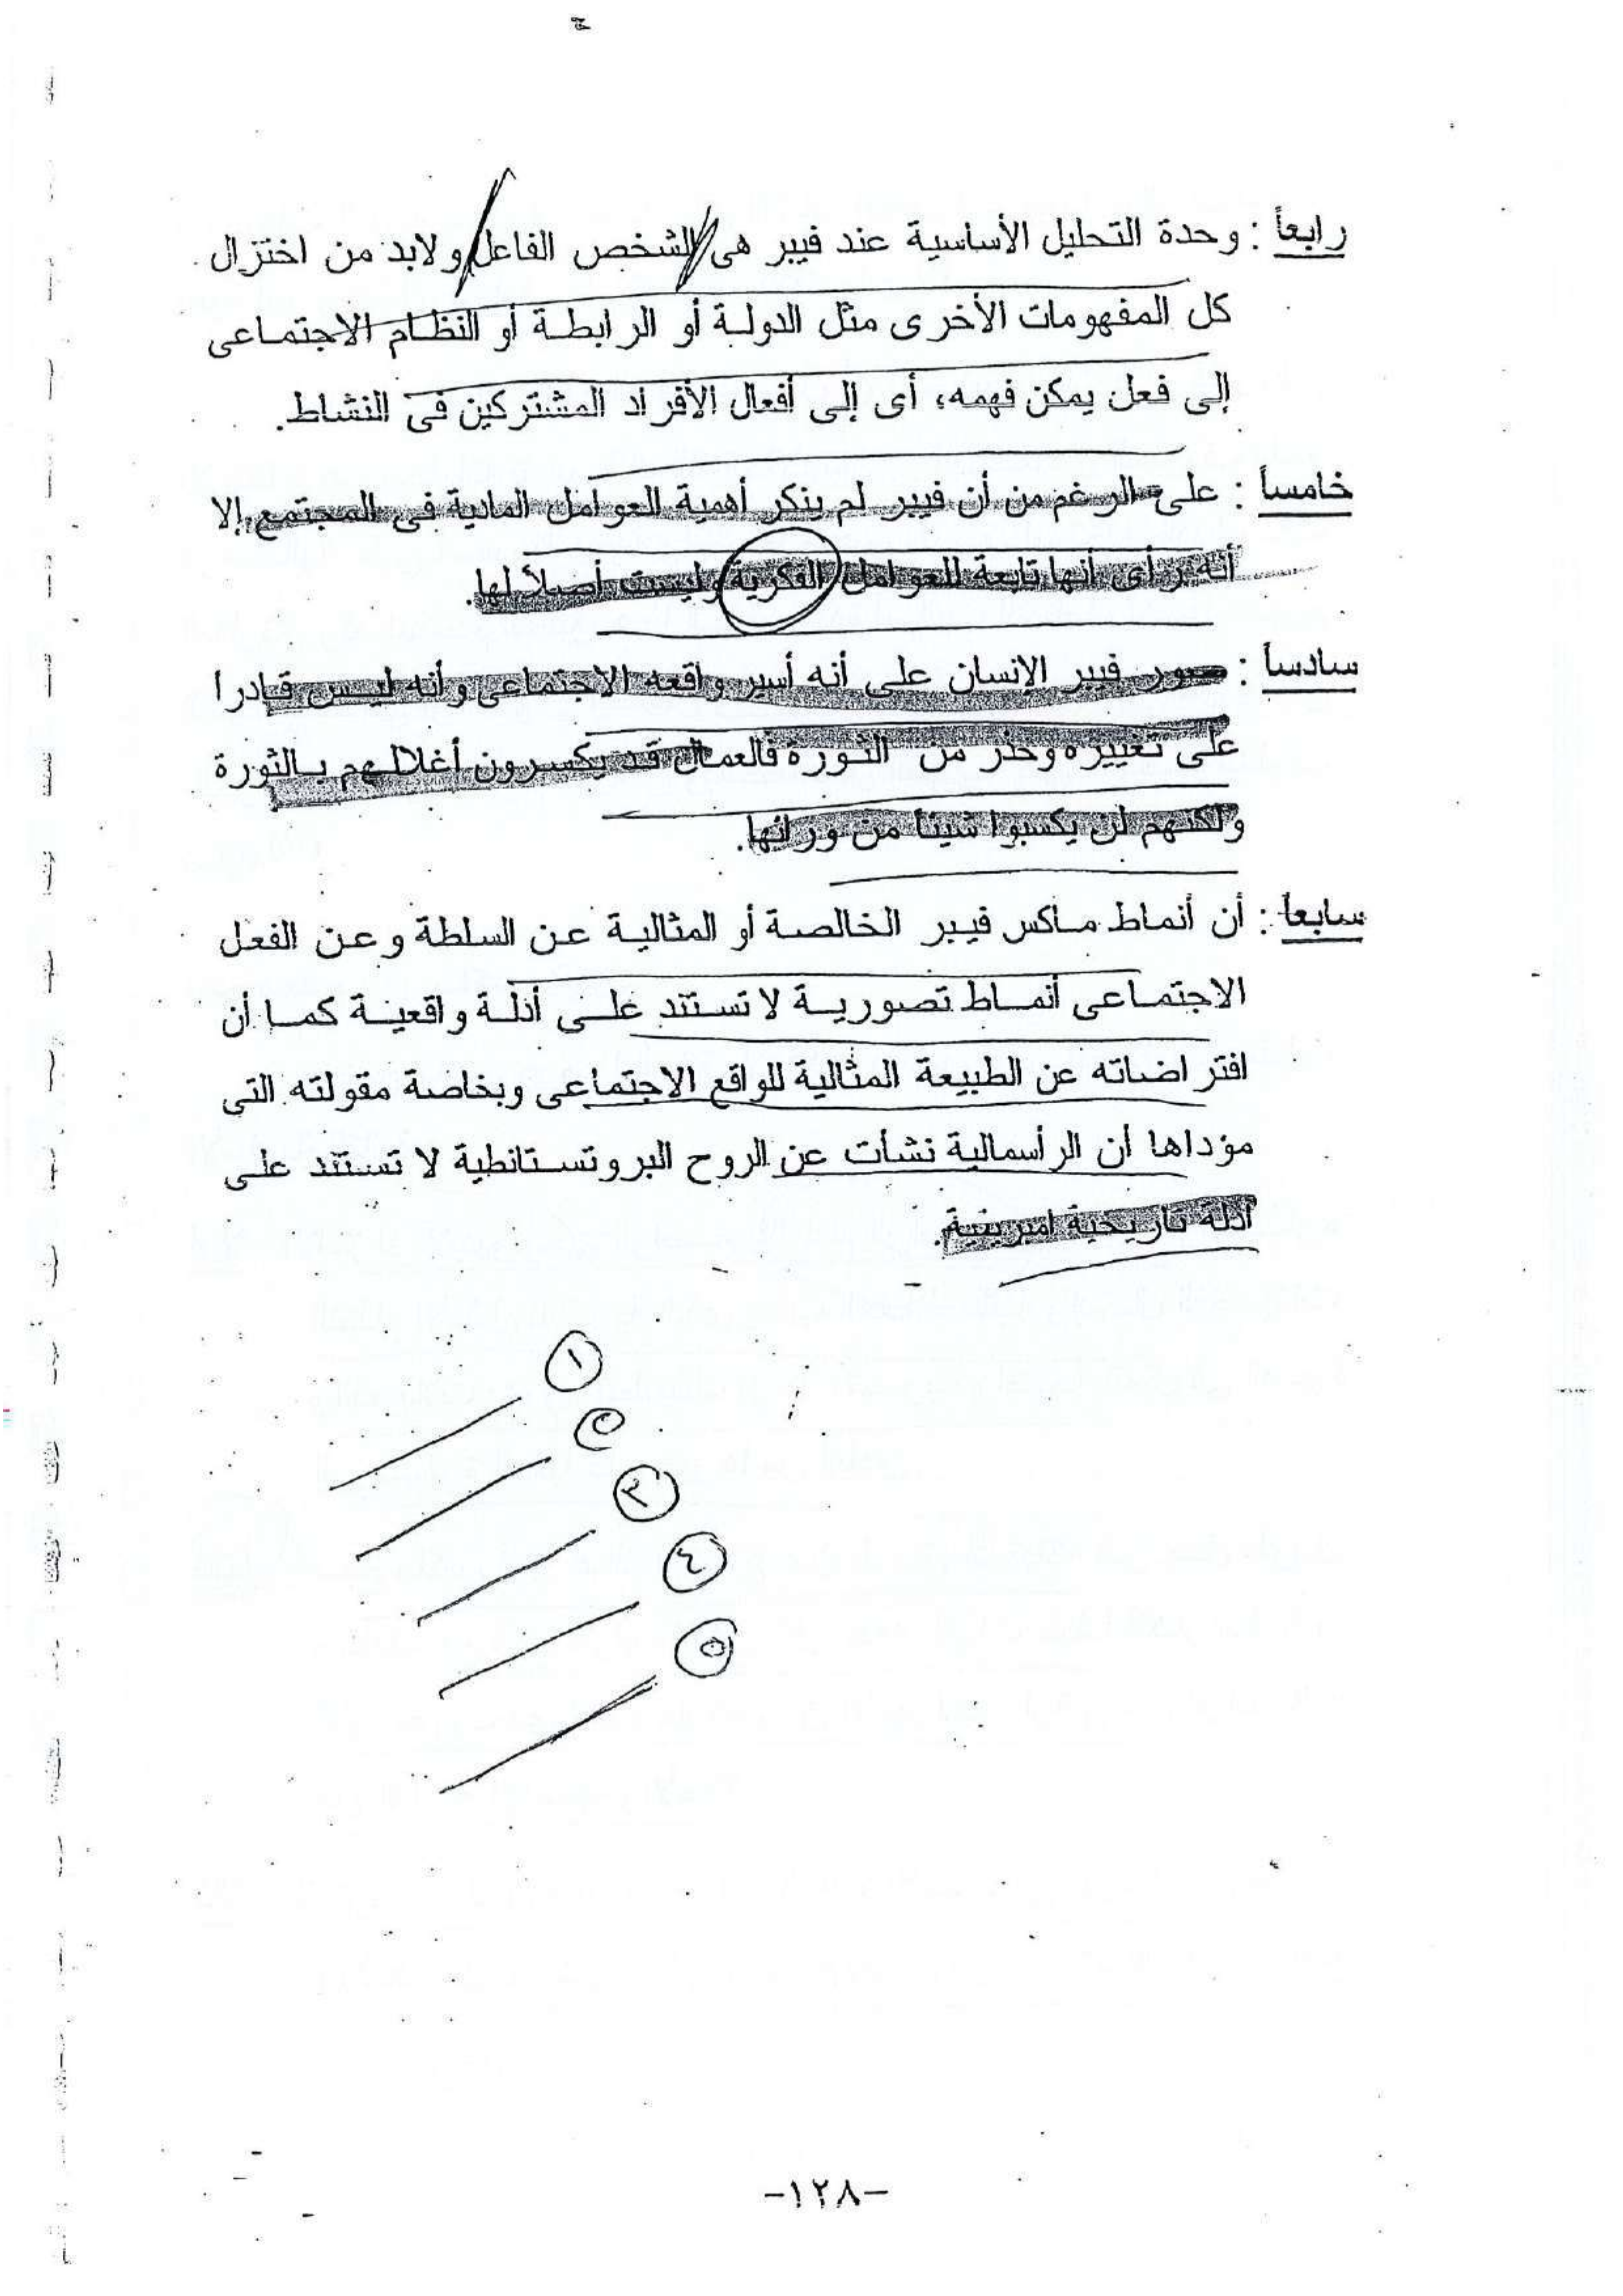 رابعاً : وحدة التحليل الأساسية عند فيبر هى الشخص الفاعل ولابد من اختزال
كل المفهومات الأخرى مثل الدولة أو الرابطة أو النظام الاجتماعى
إلى فعل يمكن فهمه، أى إلى أفعال الأفراد المشتركين فى النشاط.
خامساً : على الرغم من أن فيبر لم ينكر أهمية العوامل المادية فى المجتمع إلا
أنه رأى أنها تابعة للعوامل الفكرية وليست أصلاً لها.
سادساً : صور فيبر الإنسان على أنه أسير واقعه الاجتماعى وأنه ليس قادرا
على تغييره وحذر من الثورة فالعمال قد يكسرون أغلالهم بالثورة
ولكنهم لن يكسبوا شيئاً من ورائها.
سابعاً : أن أنماط ماكس فيبر الخالصة أو المثالية عن السلطة وعن الفعل
الاجتماعى أنماط تصورية لا تستند على أدلة واقعية كما أن
افتراضاته عن الطبيعة المثالية للواقع الاجتماعى وبخاصة مقولته التى
مؤداها أن الرأسمالية نشأت عن الروح البروتستانطية لا تستند على
أدلة تاريخية امبريقية.
١
٢
٣
٤
٥
-١٢٨-